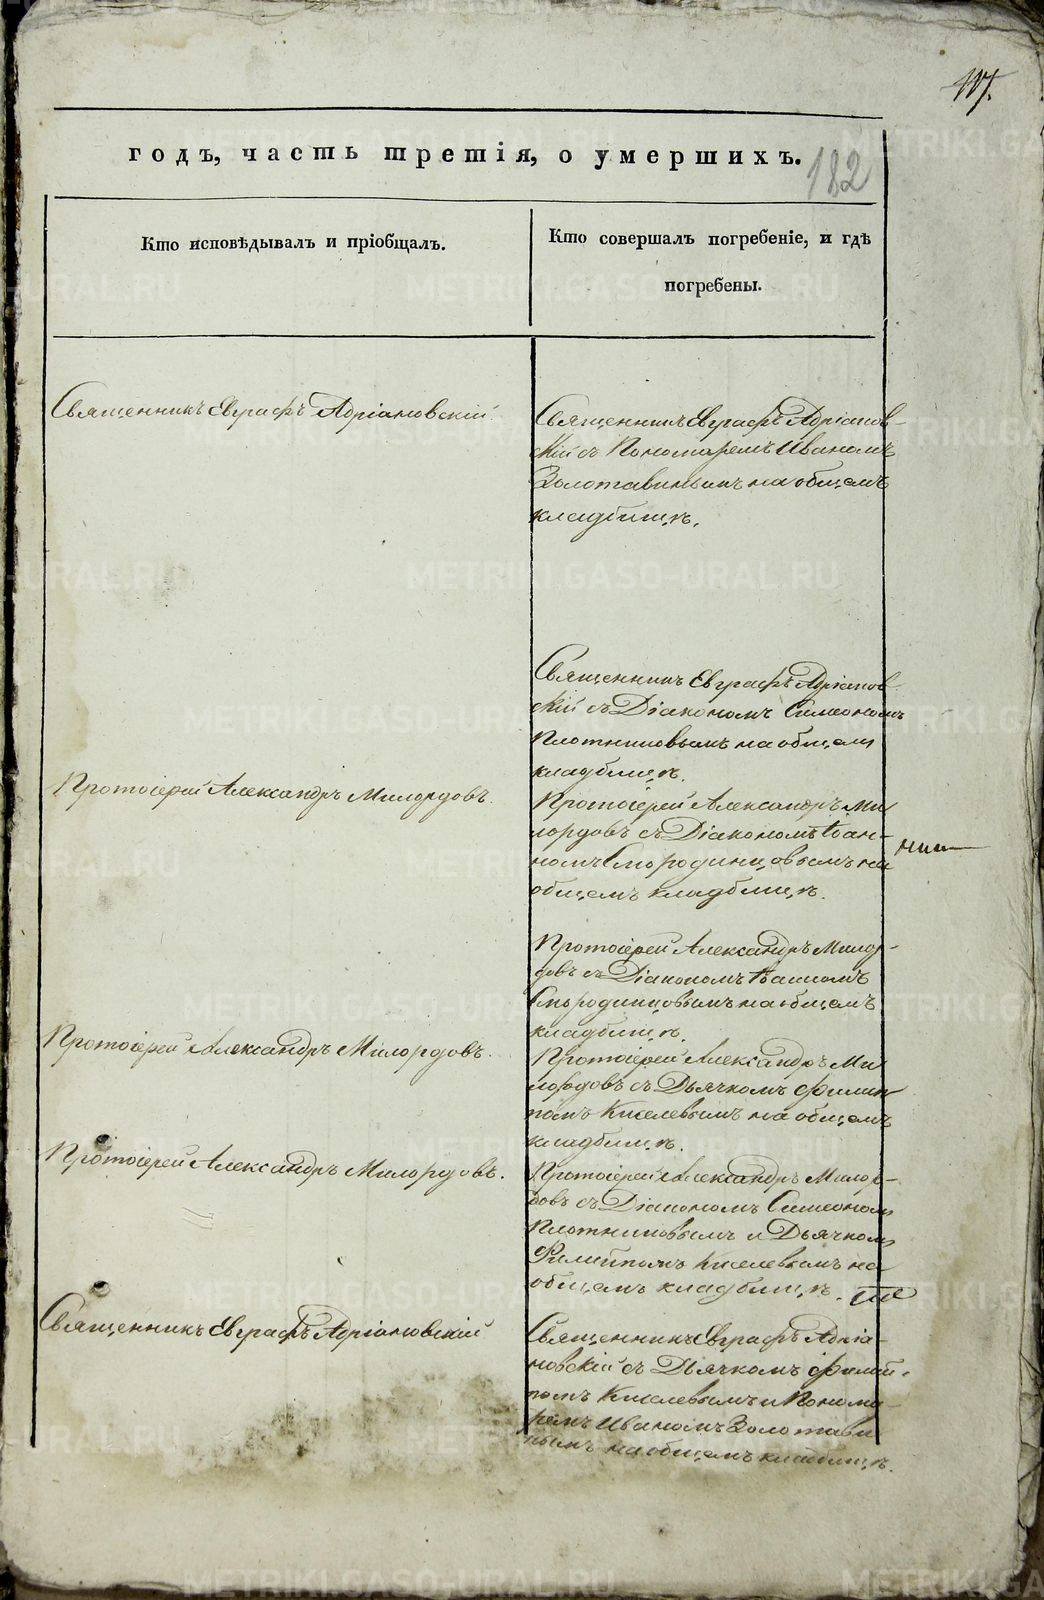 годъ, часть третія, о умершихъ.
182
Кто исповѣдывалъ и пріобщалъ.
Кто совершалъ погребеніе, и гдѣ
погребены.
Священникъ Евграфъ Адріановскій
Священникъ Евграфъ Адріанов-
скій съ Пономаремъ Иваномъ
Золотавинымъ на общемъ
кладбищѣ.
Священникъ Евграфъ Адріанов-
скій съ Діакономъ Симеономъ
Плотниковымъ на общемъ
кладбищѣ.
Протоіерей Александръ Милордовъ.
Протоіерей Александръ Ми
лордовъ съ Діакономъ Іоан-
номъ Смородинцовымъ на
общемъ кладбищѣ.
Протоіерей Александръ Милор-
довъ съ Діакономъ Іоанномъ
Смородинцовымъ на общемъ
кладбищѣ.
Протоіерей Александръ Милордовъ.
Протоіерей Александръ Ми
лордовъ съ Дьячкомъ Филип
помъ Киселевымъ на общемъ
кладбищѣ.
Протоіерей Александръ Милордовъ.
Протоіерей Александръ Милор-
довъ съ Діакономъ Симеономъ
Плотниковымъ и Дьячкомъ
Филиппомъ Киселевымъ на
общемъ кладбищѣ.
Священникъ Евграфъ Адріановскій
Священникъ Евграфъ Адріа-
новскій съ Дьячкомъ Филип-
помъ Киселевымъ и Понома-
ремъ Иваномъ Золотави
нымъ на общемъ кладбищѣ.
METRIKI.GASO-URAL.RU